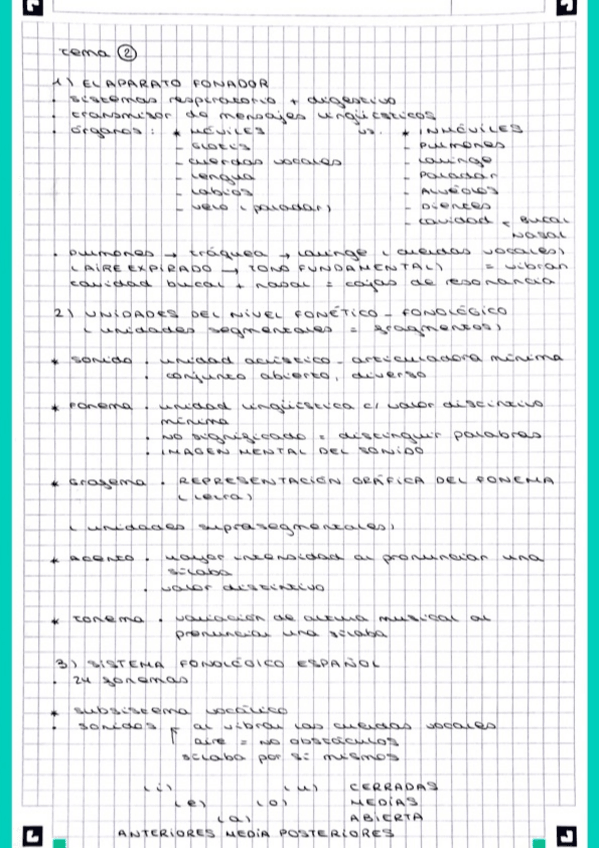 tema ②
1) EL APARATO FONADOR
· sistemas respiratorio + digestivo
· transmisor de mensajes lingüísticos
· órganos: * MÓVILES vs. * INMÓVILES
- GLOTIS - PULMONES
- cuerdas vocales - laringe
- lengua - PALADAR
- LABIOS - ALVÉOLOS
- velo (paladar) - DIENTES
- cavidad < BUCAL
NASAL
· pulmones → tráquea → laringe (cuerdas vocales)
(AIRE EXPIRADO → TONO FUNDAMENTAL) = vibran
cavidad bucal + nasal = cajas de resonancia
2) UNIDADES DEL NIVEL FONÉTICO - FONOLÓGICO
(unidades segmentales = fragmentos)
* sonido · unidad acústico - articuladora mínima
· conjunto abierto, diverso
* FONEMA · unidad lingüística c/ valor distintivo
mínima
· NO significado = distinguir palabras
· IMAGEN MENTAL DEL SONIDO
* Grafema · REPRESENTACIÓN GRÁFICA DEL FONEMA
(letra)
(unidades suprasegmentales)
* ACENTO · mayor intensidad al pronunciar una
sílaba
· valor distintivo
* tonema · variación de altura musical al
pronunciar una sílaba
3) SISTEMA FONOLÓGICO ESPAÑOL
· 24 fonemas
* subsistema vocálico
· sonidos al vibrar las cuerdas vocales
↑ aire = no obstáculos
sílaba por sí mismos
(i) (u) CERRADAS
(e) (o) MEDIAS
(a) ABIERTA
ANTERIORES MEDIA POSTERIORES